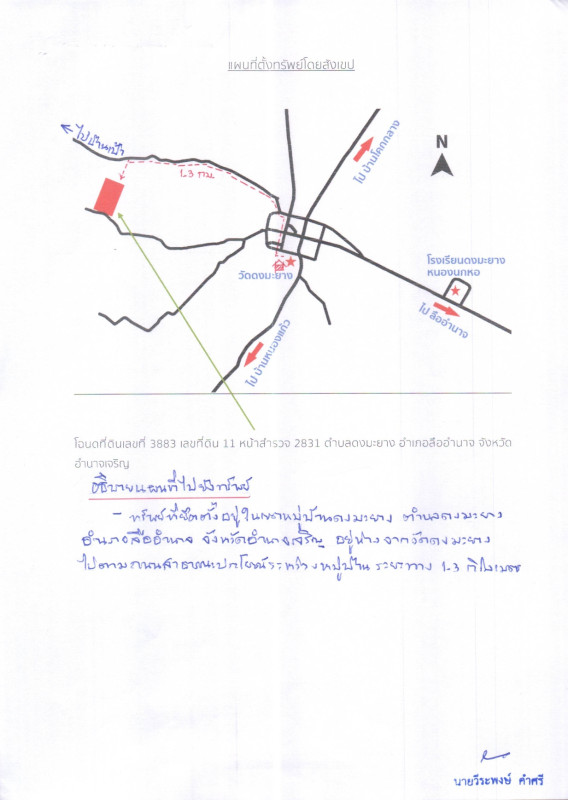 แผนที่ตั้งทรัพย์โดยสังเขป
ไปบ้านเป้า
1.3 กม.
ไป บ้านโคกกลาง
N
วัดดงมะยาง
โรงเรียนดงมะยาง
หนองนกหอ
ไป ลืออำนาจ
ไป บ้านหนองแก้ว
โฉนดที่ดินเลขที่ 3883 เลขที่ดิน 11 หน้าสำรวจ 2831 ตำบลดงมะยาง อำเภอลืออำนาจ จังหวัด
อำนาจเจริญ
อธิบายแผนที่ไปยังทรัพย์
- ทรัพย์ที่ยึดตั้งอยู่ในเขตหมู่บ้านดงมะยาง ตำบลดงมะยาง
อำเภอลืออำนาจ จังหวัดอำนาจเจริญ อยู่ห่างจากวัดดงมะยาง
ไปตามถนนสาธารณะประโยชน์ระหว่างหมู่บ้าน ระยะทาง 1.3 กิโลเมตร
นายวีระพงษ์ คำศรี